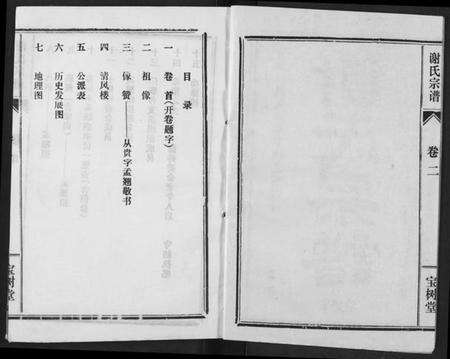 谢氏宗谱
卷二
宝树堂
目录
一 卷首(开卷题字)
二 祖像
三 像赞——从贵字孟翘敬书
四 清风楼
五 公派表
六 历史发展图
七 地理图
宝树堂